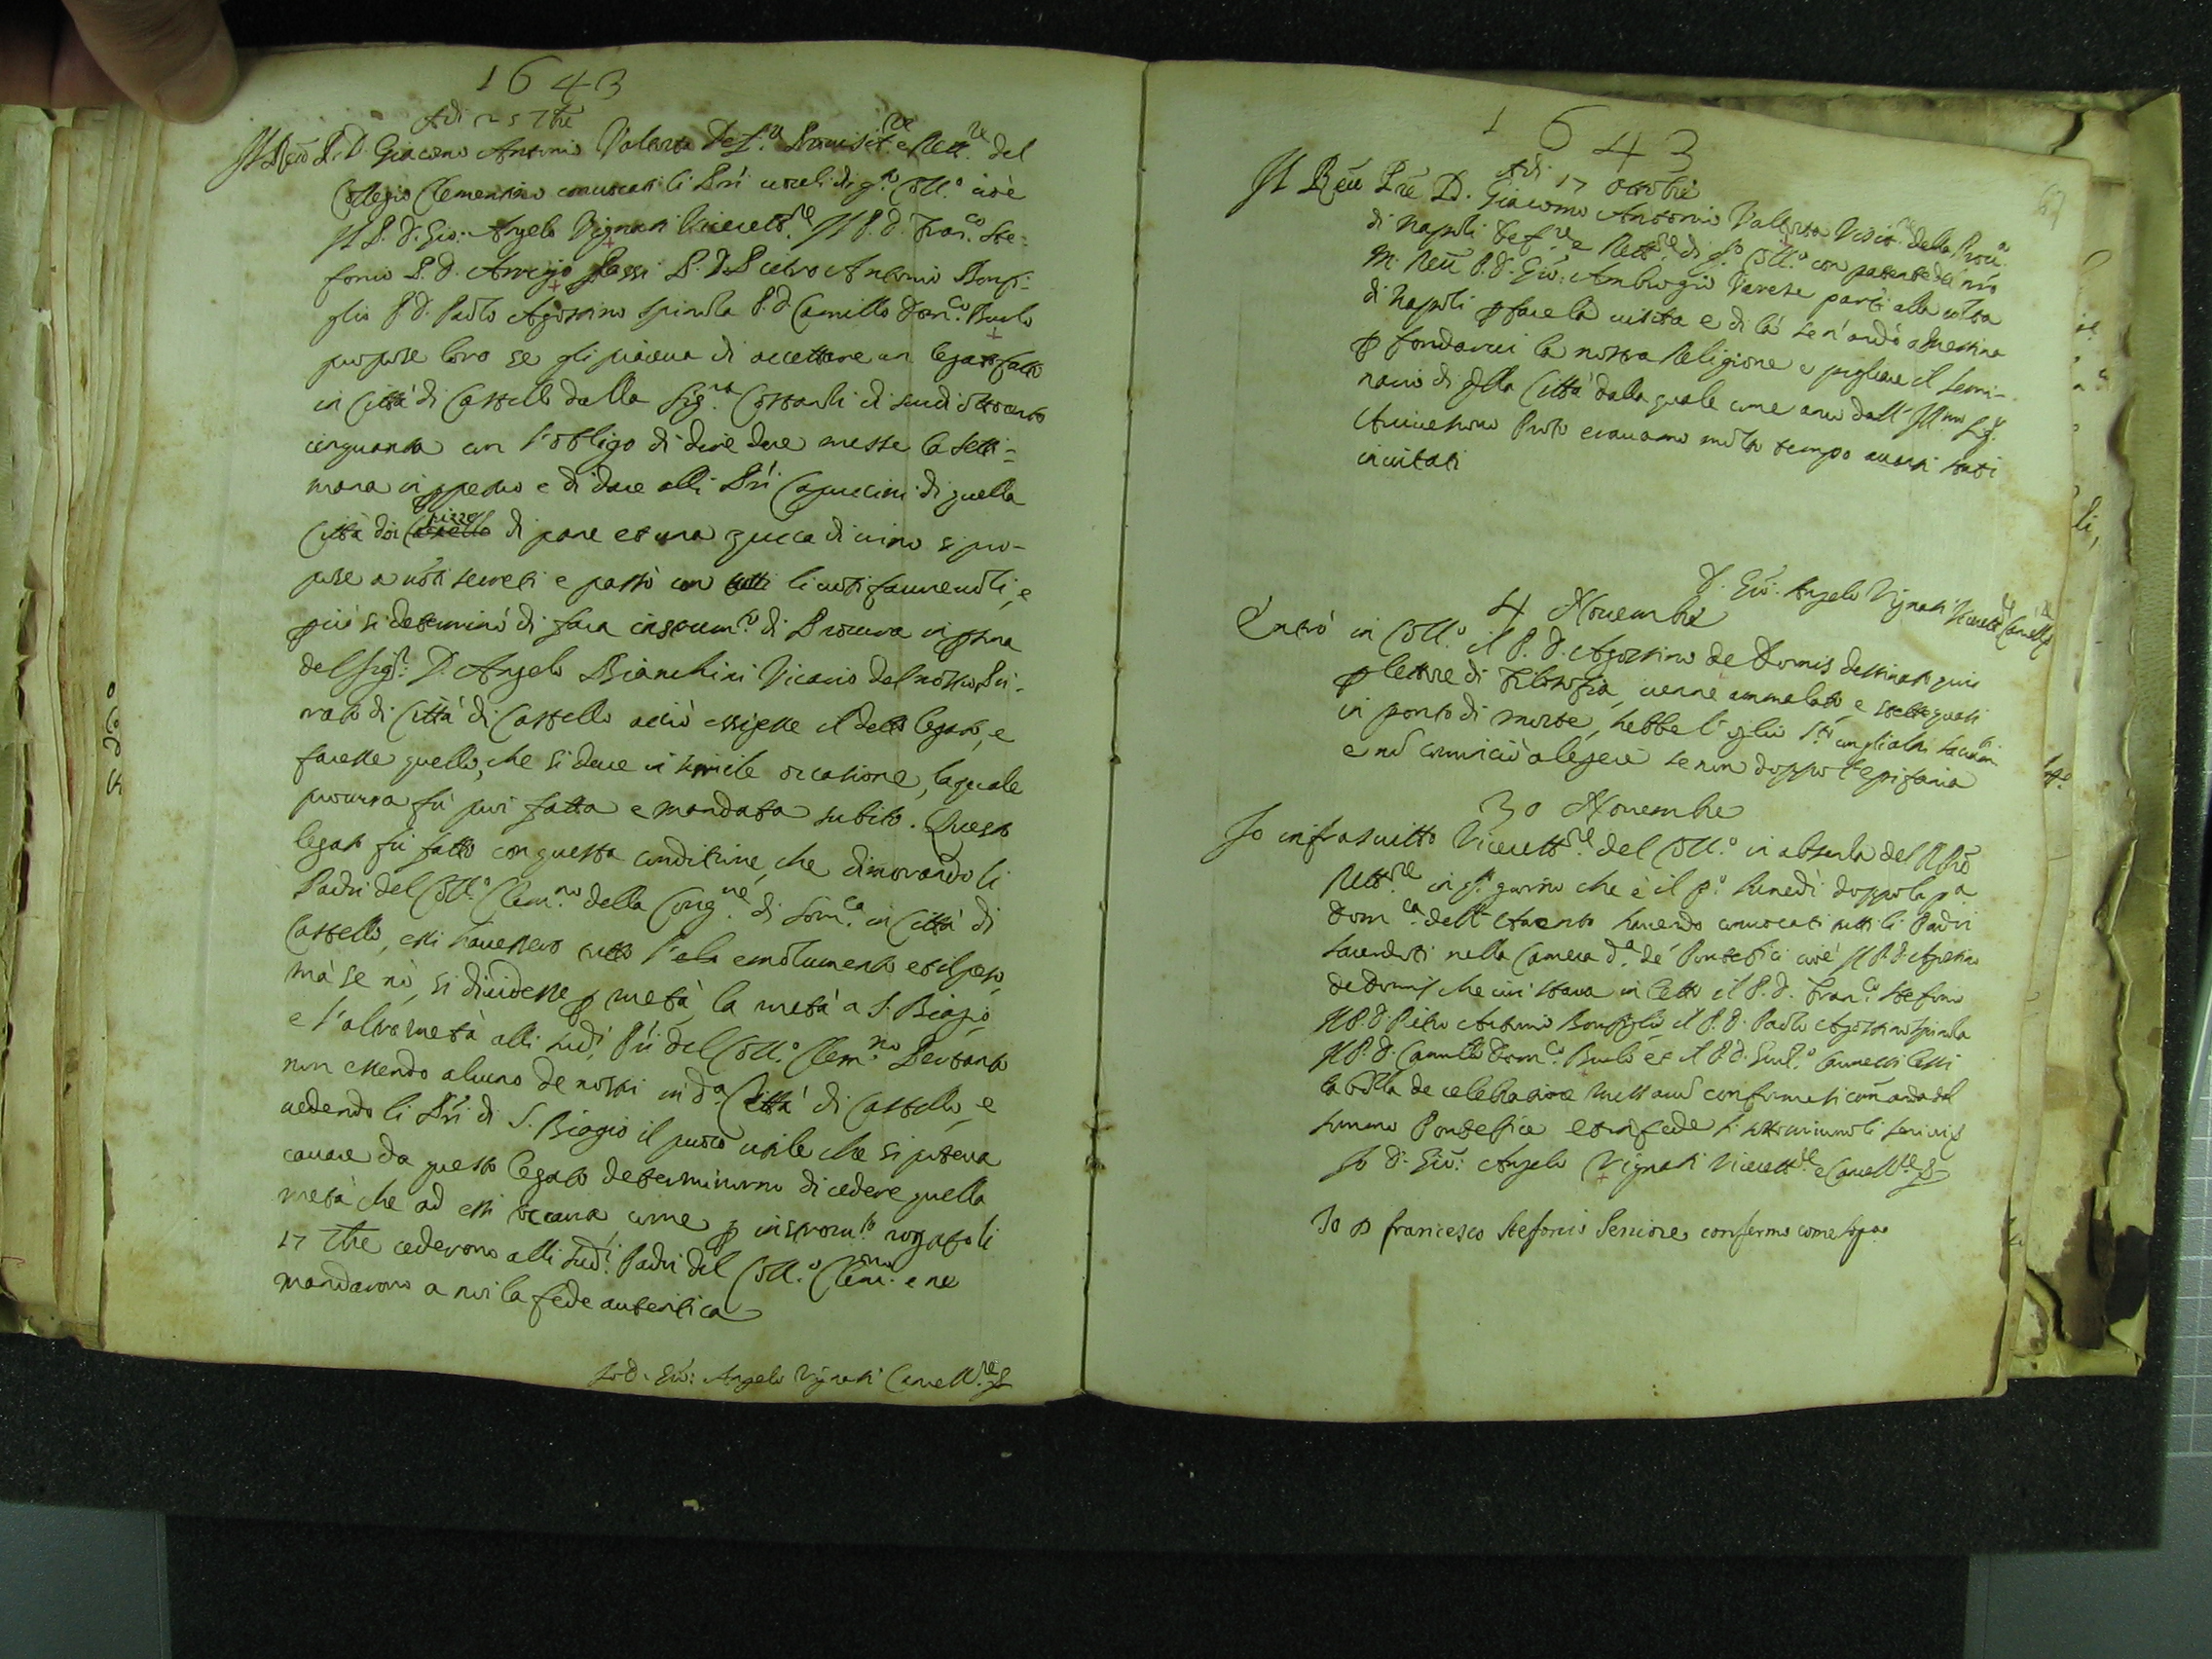 1643
Adi 25 7bre
Il Reu.do P. D. Giacomo Antonio Valtorta Def.re Prouisit.re e Rett.re del
Collegio Clementino conuocati li Pri uocali di q.o Coll.o cioè
Il P. D. Gio: Angelo Vignati Vicerett.re Il P. D. Fran.co Ste-
fonio P. D. Arrigo Sassi P. D. Pietro Antonio Bonfi-
glio P. D. Paolo Agostino Spinola P. D. Camillo Dom.co Buslo
propose loro se gli piaceua di accettare un legato fatto
in Città di Castello dalla Sig.ra di scudi ottocento
cinquanta con l'obligo di dire due messe la setti=
mana in ppetuo e di dare alli Pri Capuccini di quella
Città doi pizze di pane et una zucca di uino si pro-
pose a uoti secreti e passò con tutti li uoti fauoreuoli, e
pciò si determinò di fara instrum.to di Procura in psona
del Sig.r D. Angelo Bianchini Vicario del nostro Pri-
orato di Città di Castello acciò essigesse il detto legato, e
facesse quello, che si deue in simile occasione, la quale
procura fù poi fatta e mandata subito. Questo
legato fù fatto con questa conditione, che dimorando li
Padri del Coll.o Clem.no della Cong.ne di Som.ca in Città di
Castello, essi hauessero tutto l'elo emolumento et il peso,
mà se nò, si diuidesse p metà, la metà a S. Biagio,
e l'altra metà alli sud.i Pri del Coll.o Clem.no Pertanto
non essendo alcuno de nostri in d.a Città di Castello, e
uedendo li Pri di S. Biagio il puoco utile che si poteua
cauare da questo legato determinorno di cedere quella
metà che ad essi toccaua come p instrom.to rogato li
17 7bre cederono alli sud.i Padri del Coll.o Clem.no e ne
mandarono a noi la fede autentica
Io D. Gio: Angelo Vignati Cancell.re
1643
67
Adi 17 Ottobre
Il Reu.do Pre D. Giacomo Antonio Valtorta Visit.re della Prou.a
di Napoli Def.re e Rett.re di q.o Coll.o con patente del nro
M. Reu.do P. D. Gio: Ambrogio Varese partì alla uolta
di Napoli p fare la uisita e di là se n'andò a Messina
p fondarui la nostra Religione e pigliare il Semi-
nario di qlla Città dalla quale come anco dall' Ill.mo Sig.r
Arciuescouo Proto erauamo molto tempo auanti stati
inuitati
D. Gio: Angelo Vignati Vicerett.re Cancell.re
4 Nouembre
Entrò in Coll.o il P. D. Agostino de Domis destinato quiui
p lettore di Filosofia, uenne ammalato, e stette quasi
in ponto di morte, hebbe l'oglio S.to con gli altri sacram.ti
e nò cominciò a legere se non doppo l'epifania
30 Nouembre
Io infrascritto Vicerett.re del Coll.o in absenza del P. Pro
Rett.re in q.o giorno che è il p.o lunedì doppo la p.a
Dom.ca dell'Auento hauendo conuocati tutti li Padri
sacerdoti nella Camera d.a de Pontefici cioè Il P. D. Agostino
de Domis che iui staua in letto il P. D. Fran.co Stefonio
Il P. D. Pietro Antonio Bonfiglio il P. D. Paolo Agostino Spinola
Il P. D. Camillo Dom.co Buslo et il P. D. Giul.o lessi
la bolla de celebratione missarum conforme si comanda dal
sommo Pontefice et in fede
Io D. Gio: Angelo Vignati Vicerett.re e Cancell.re
Io D francesco Stefonio Seniore confermo come sopra